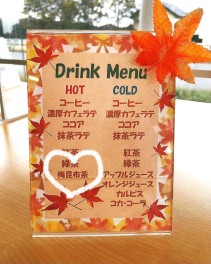 Drink Menu
HOT COLD
コーヒー コーヒー
濃厚カフェラテ 濃厚カフェラテ
ココア ココア
抹茶ラテ 抹茶ラテ
紅茶 紅茶
緑茶 緑茶
梅昆布茶 アップルジュース
オレンジジュース
カルピス
コカ・コーラ